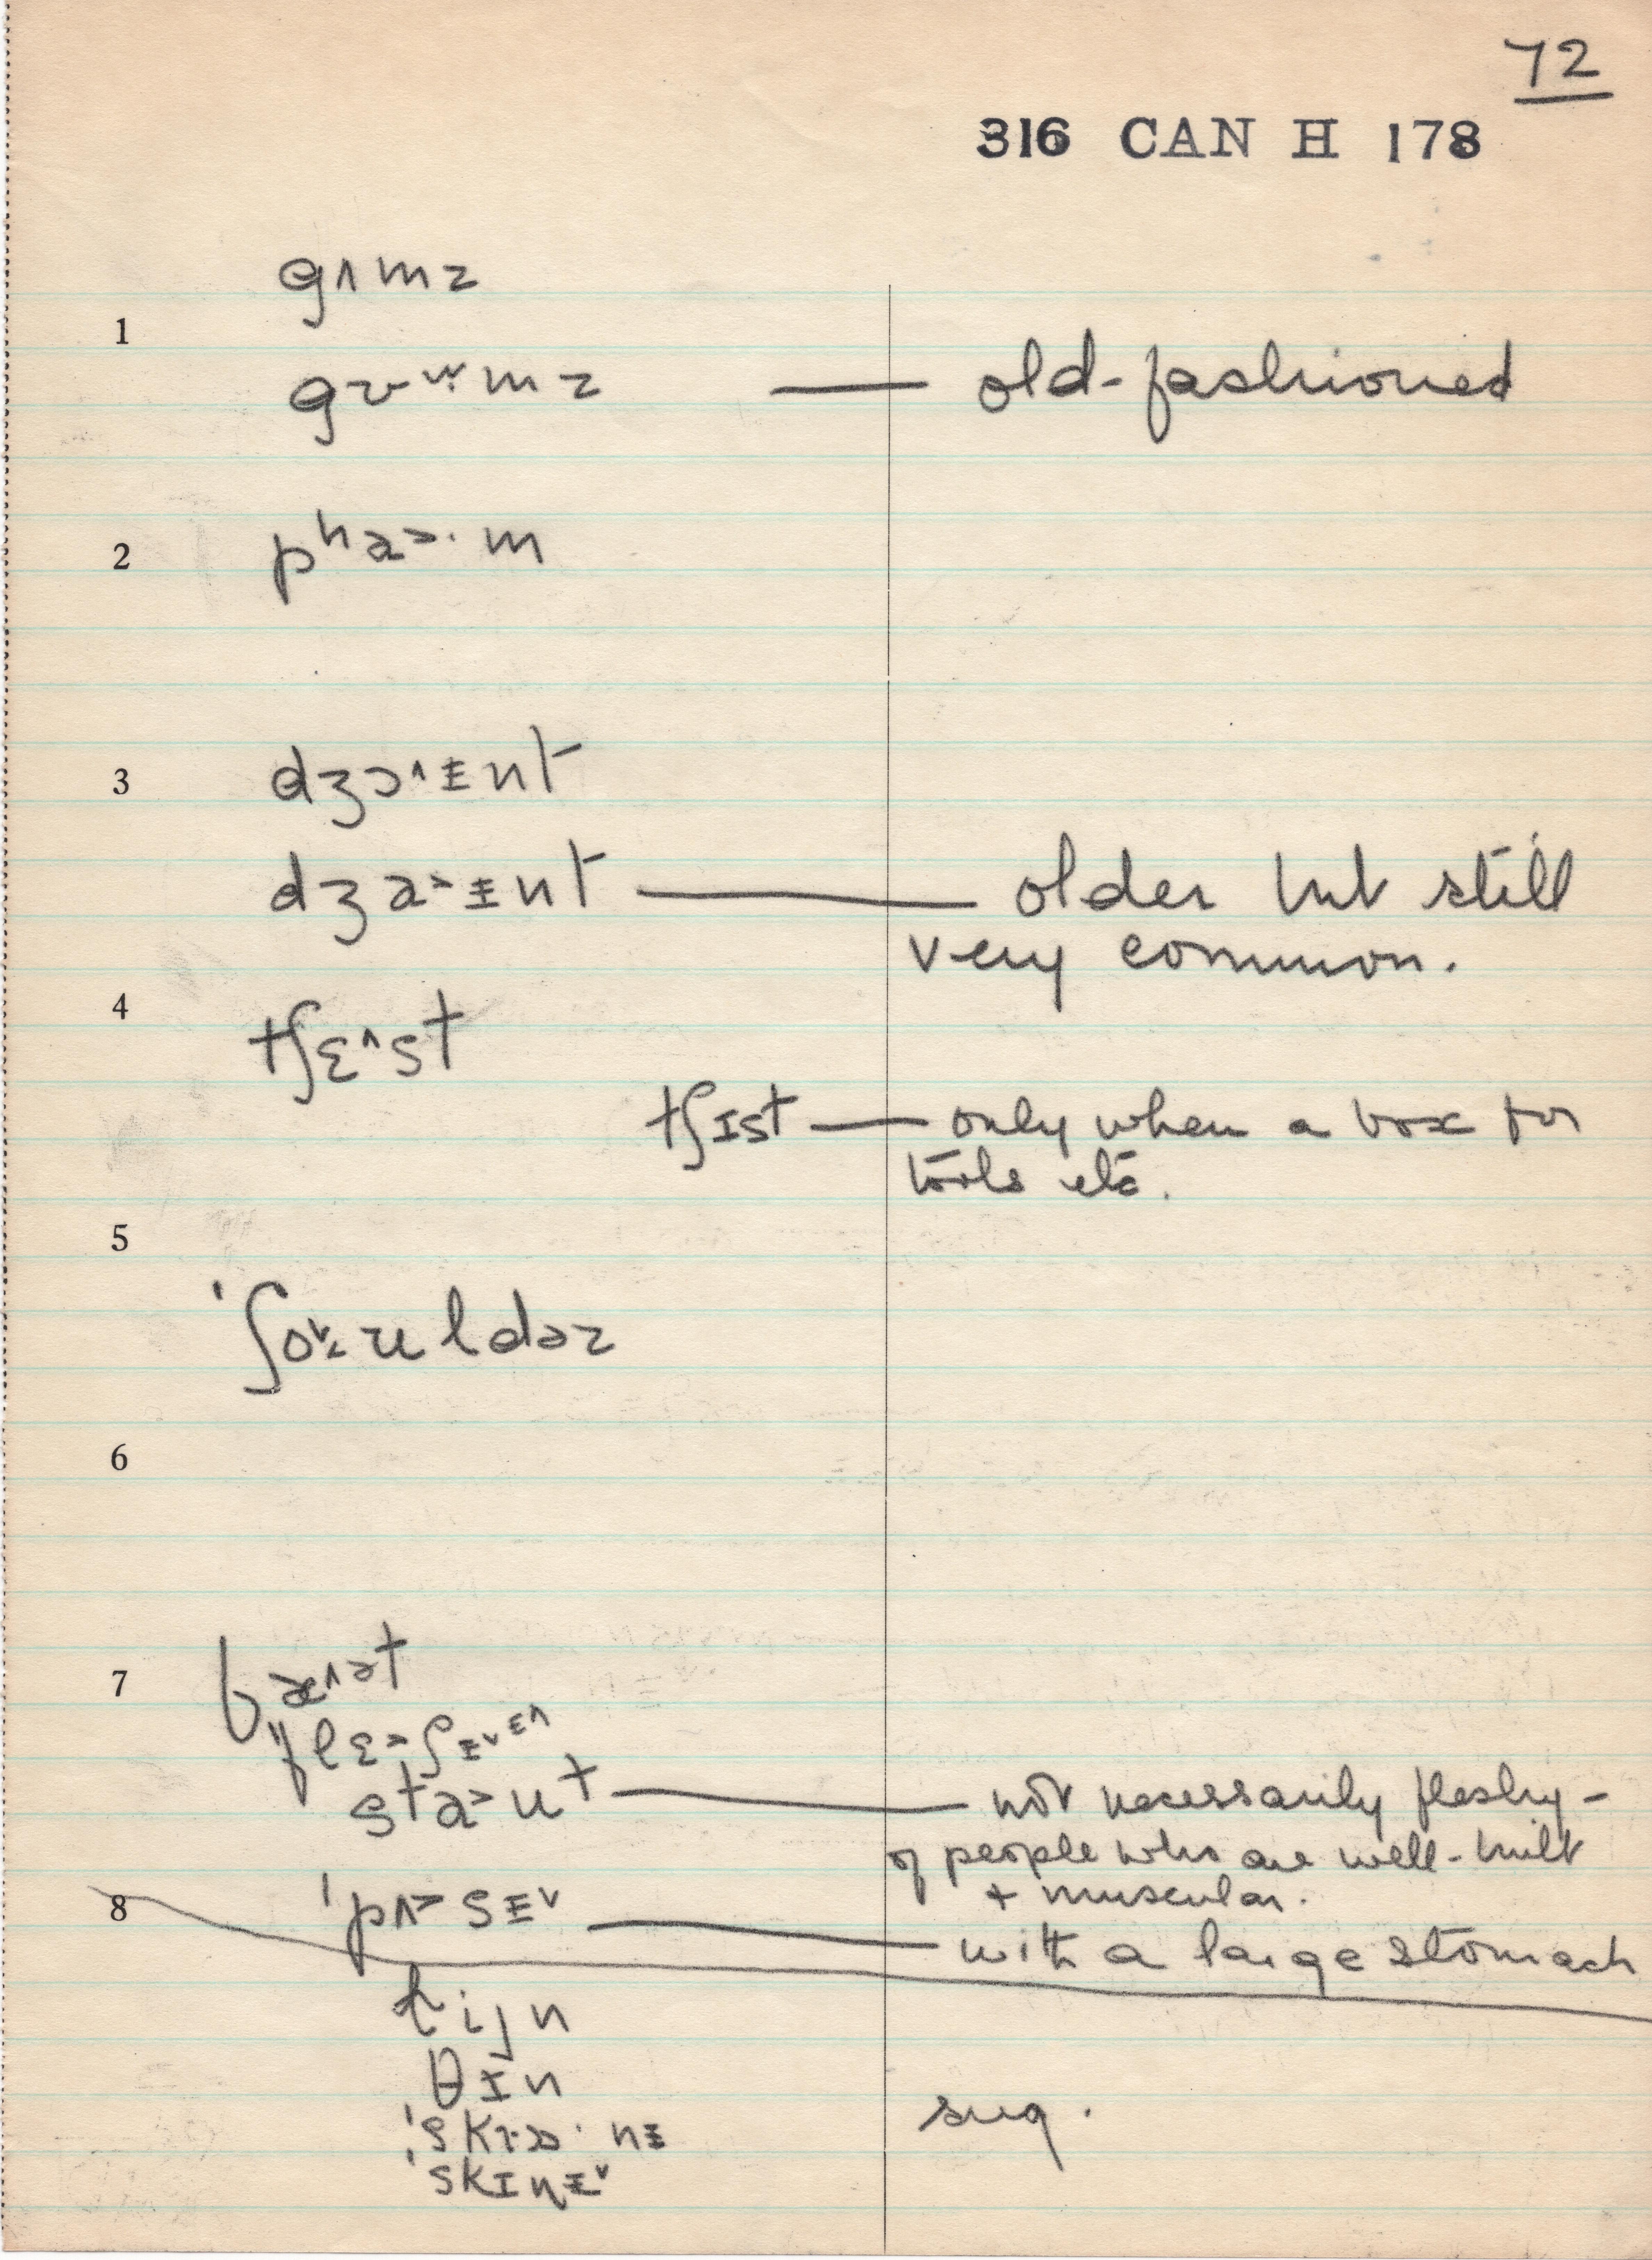 72
316 CAN H 178
gʌmz
1
gʊᵚ·mz — old-fashioned
2 pʰa˃·m
3 dʒɔ˄ɪnt
dʒa˃ɪnt — older but still
very common.
4 tʃɛ˄st
tʃɪst — only when a box for
tools etc.
5
ˈʃoʊldəz
6
7 fæ˄ət
ˈflɛ˃ʃɪ˅
sta˃ut — not necessarily fleshy -
of people who are well-built
+ muscular.
8 ˈpʌ˃sɪ˅ — with a large stomach
lijn
θɪn
sug.
ˈskɪnɪ˅